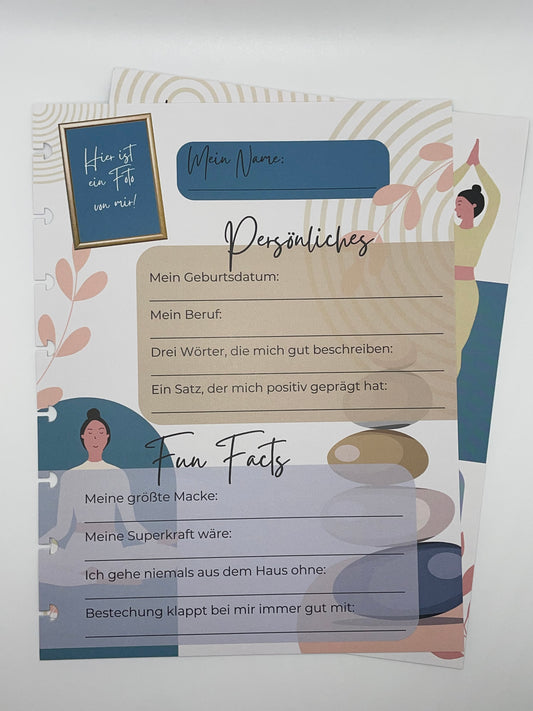 Hier ist
ein Foto
von mir!
Mein Name:
Persönliches
Mein Geburtsdatum:
Mein Beruf:
Drei Wörter, die mich gut beschreiben:
Ein Satz, der mich positiv geprägt hat:
Fun Facts
Meine größte Macke:
Meine Superkraft wäre:
Ich gehe niemals aus dem Haus ohne:
Bestechung klappt bei mir immer gut mit: